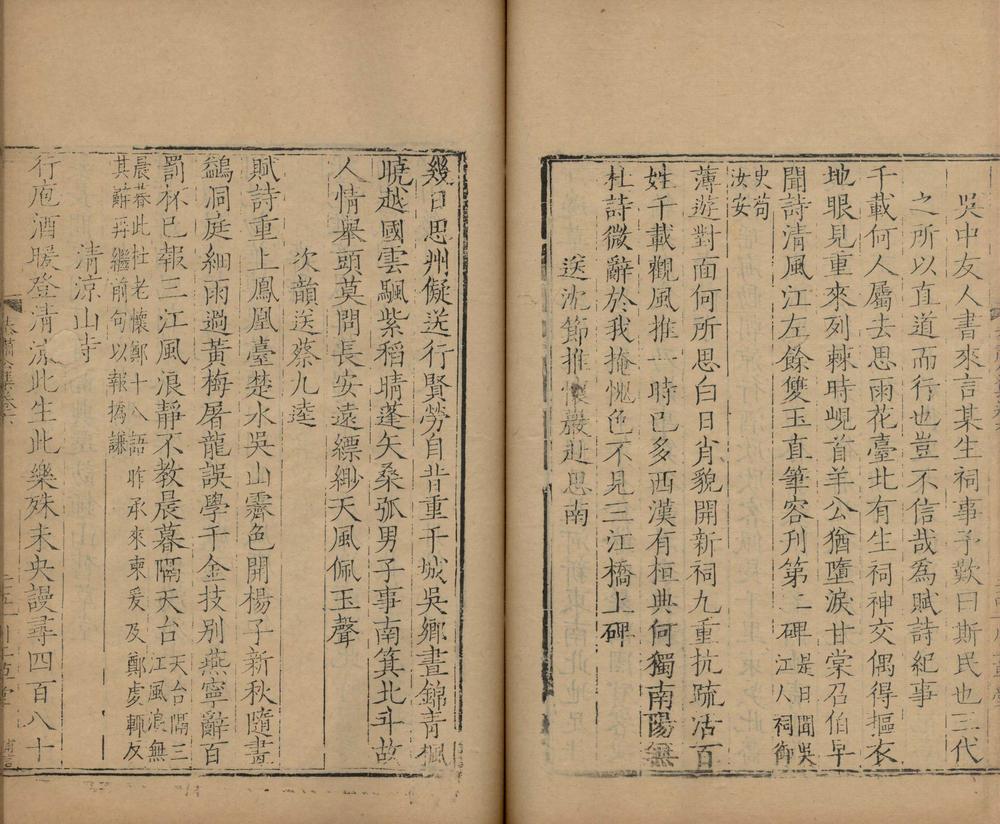 吳中友人書來言某生祠事予歎曰斯民也三代
之所以直道而行也豈不信哉為賦詩紀事
千載何人屬去思雨花臺北有生祠神交偶得摳衣
地眼見重來列棘時峴首羊公猶墮淚甘棠召伯早
聞詩清風江左餘雙玉直筆容刊第二碑是日聞吳江人祠御
史荀汝安
薄遊對面何所思白日肖貌開新祠九重抗疏活百
姓千載觀風推一時已多西漢有桓典何獨南陽無
杜詩微辭於我掩愧色不見三江橋上碑
送沈節推懷巖赴思南
幾日思州儗送行賢勞自昔重干城吳鄉晝錦青楓
曉越國雲颿紫稻晴蓬矢桑弧男子事南箕北斗故
人情舉頭莫問長安遠縹緲天風佩玉聲
次韻送蔡九逵
賦詩重上鳳凰臺楚水吳山霽色開楊子新秋隨畫
鷁洞庭細雨過黃梅屠龍誤學千金技別燕寧辭百
罰杯已報三江風浪靜不教晨暮隔天台天台隔三江風浪無
晨暮此杜老懷鄭十八語昨承來柬爰及鄭虔輒反
其辭再繼前句以報撝謙
清涼山寺
行庖酒暖登清涼此生此樂殊未央謾尋四百八十